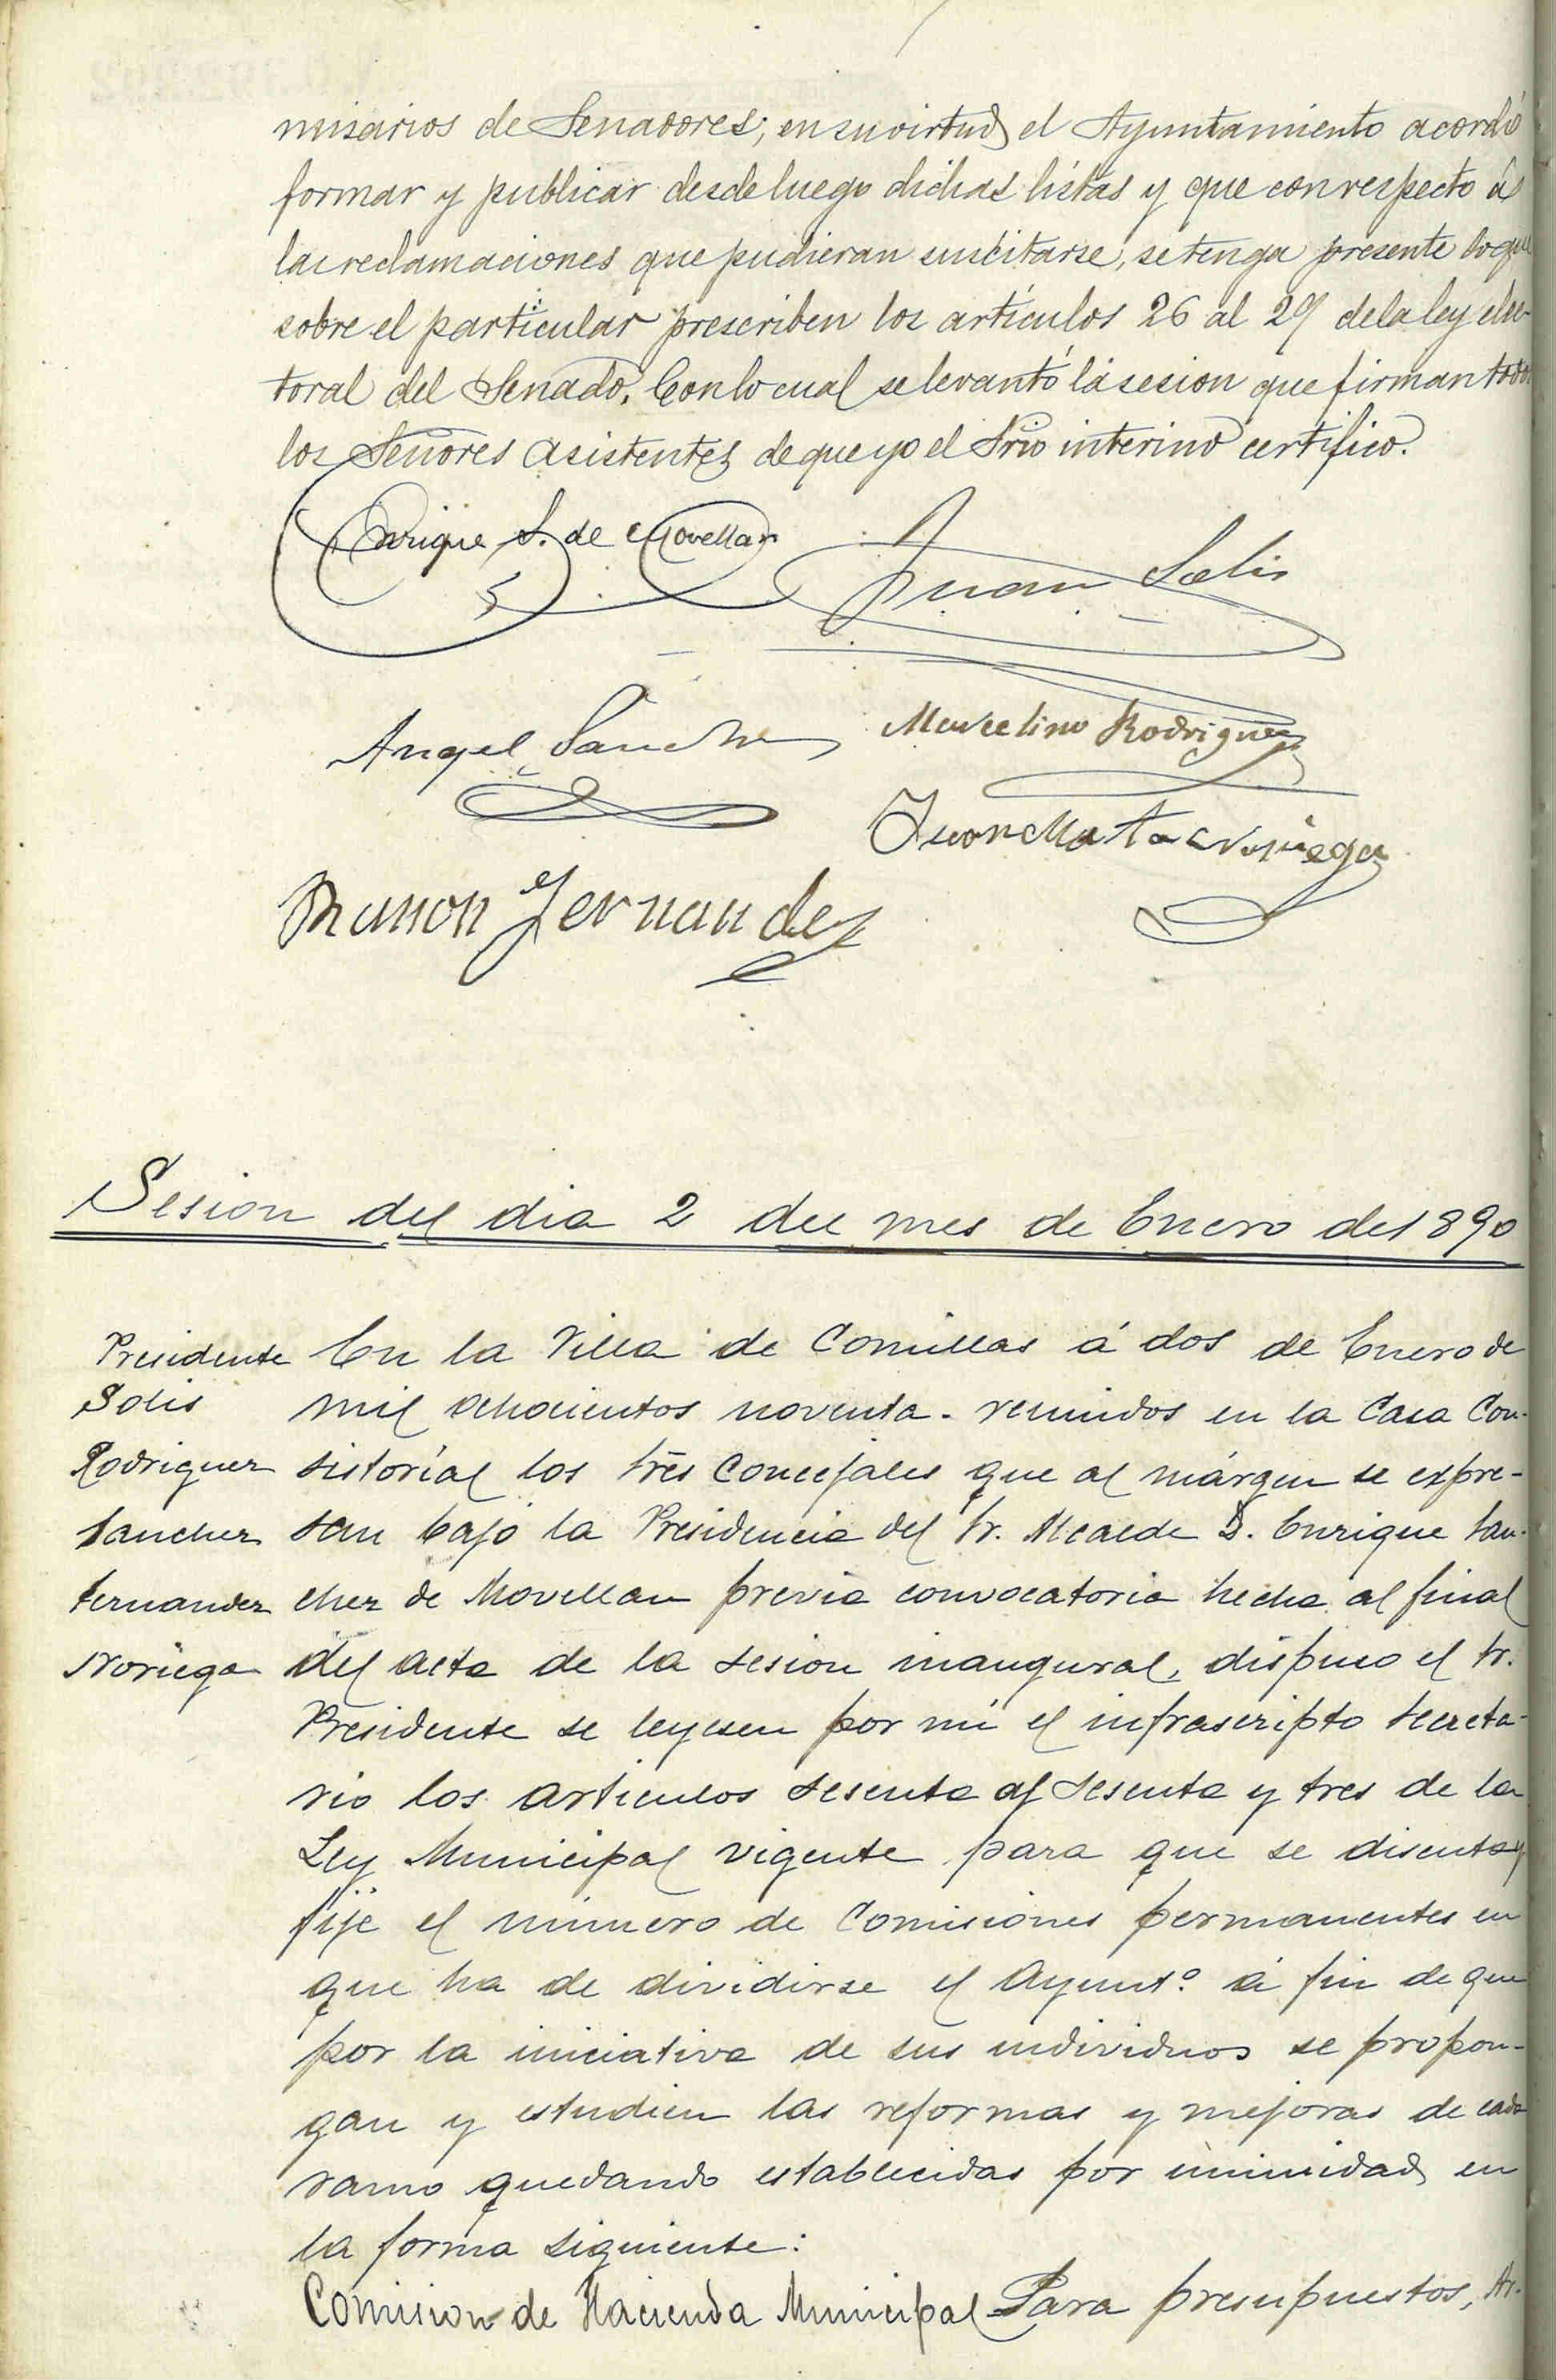 misarios de Senadores; en su virtud el Ayuntamiento acordó
formar y publicar desde luego dichas listas y que con respecto á
las reclamaciones que pudieran suscitarse, se tenga presente lo que
sobre el particular prescriben los artículos 26 al 29 de la ley elec-
toral del Senado. Con lo cual se levantó la sesion que firman todos
los Señores asistentes de que yo el Srio interino certifico.
Enrique S. de Movellan
Juan Solis
Angel Sanchez
Marcelino Rodriguez
Juan Mata Noriega
Ramon Fernandez
Sesion del dia 2 del mes de Enero de 1890
Presidente
Solis
Rodriguez
Sanchez
Fernandez
Noriega
En la Villa de Comillas á dos de Enero de
mil ochocientos noventa. reunidos en la Casa Con-
sistorial los Sres Concejales que al márgen se expre-
san bajo la Presidencia del Sr. Alcalde D. Enrique San-
chez de Movellan previa convocatoria hecha al final
del acta de la sesion inaugural, dispuso el Sr.
Presidente se leyesen por mi el infrascripto Secreta-
rio los articulos sesenta al sesenta y tres de la
Ley Municipal vigente para que se discuta y
fije el número de Comisiones permanentes en
que ha de dividirse el Ayuntº á fin de que
por la iniciativa de sus individuos se propon-
gan y estudien las reformas y mejoras de cada
ramo quedando establecidas por unimidad en
la forma siguiente:
Comision de Hacienda Municipal Para presupuestos, Ar.